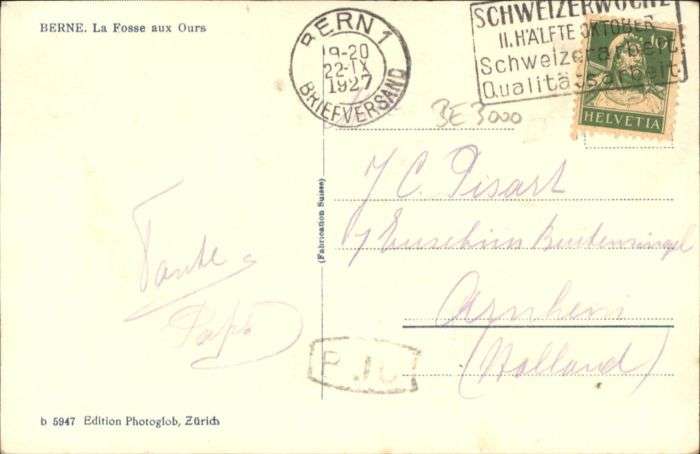 BERNE. La Fosse aux Ours
BERN 1
19-20
22·IX
1927
BRIEFVERSAND
SCHWEIZERWOCHE
II. HÄLFTE OKTOBER
Schweizerarbeit
Qualitätsarbeit
10
HELVETIA
BE 3000
(Fabrication Suisse)
J C. Pisart
Buitensingel
Arnhem
(Holland)
Tante
Papa
b 5947 Edition Photoglob, Zürich